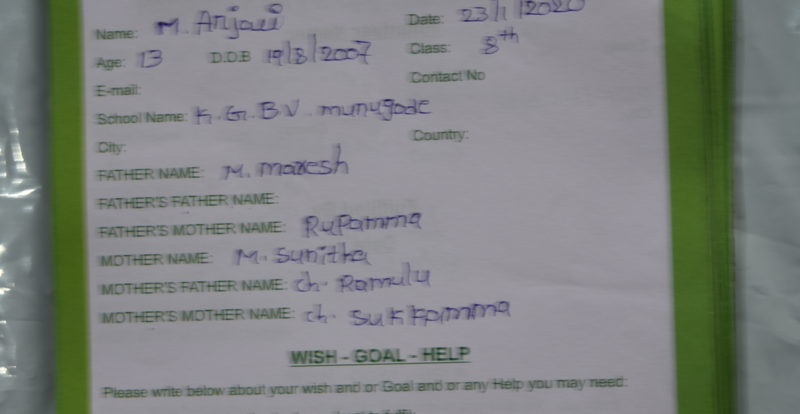 Name: M. Anjali Date: 23/1/2020
Age: 13 D.O.B 19/8/2007 Class: 8th
E-mail: Contact No
School Name: K.G.B.V. munugode
City: Country:
FATHER NAME: M. maresh
FATHER'S FATHER NAME:
FATHER'S MOTHER NAME: Rupamma
MOTHER NAME: M. Sunitha
MOTHER'S FATHER NAME: ch. Ramulu
MOTHER'S MOTHER NAME: ch. Sukkamma
WISH - GOAL - HELP
Please write below about your wish and or Goal and or any Help you may need: